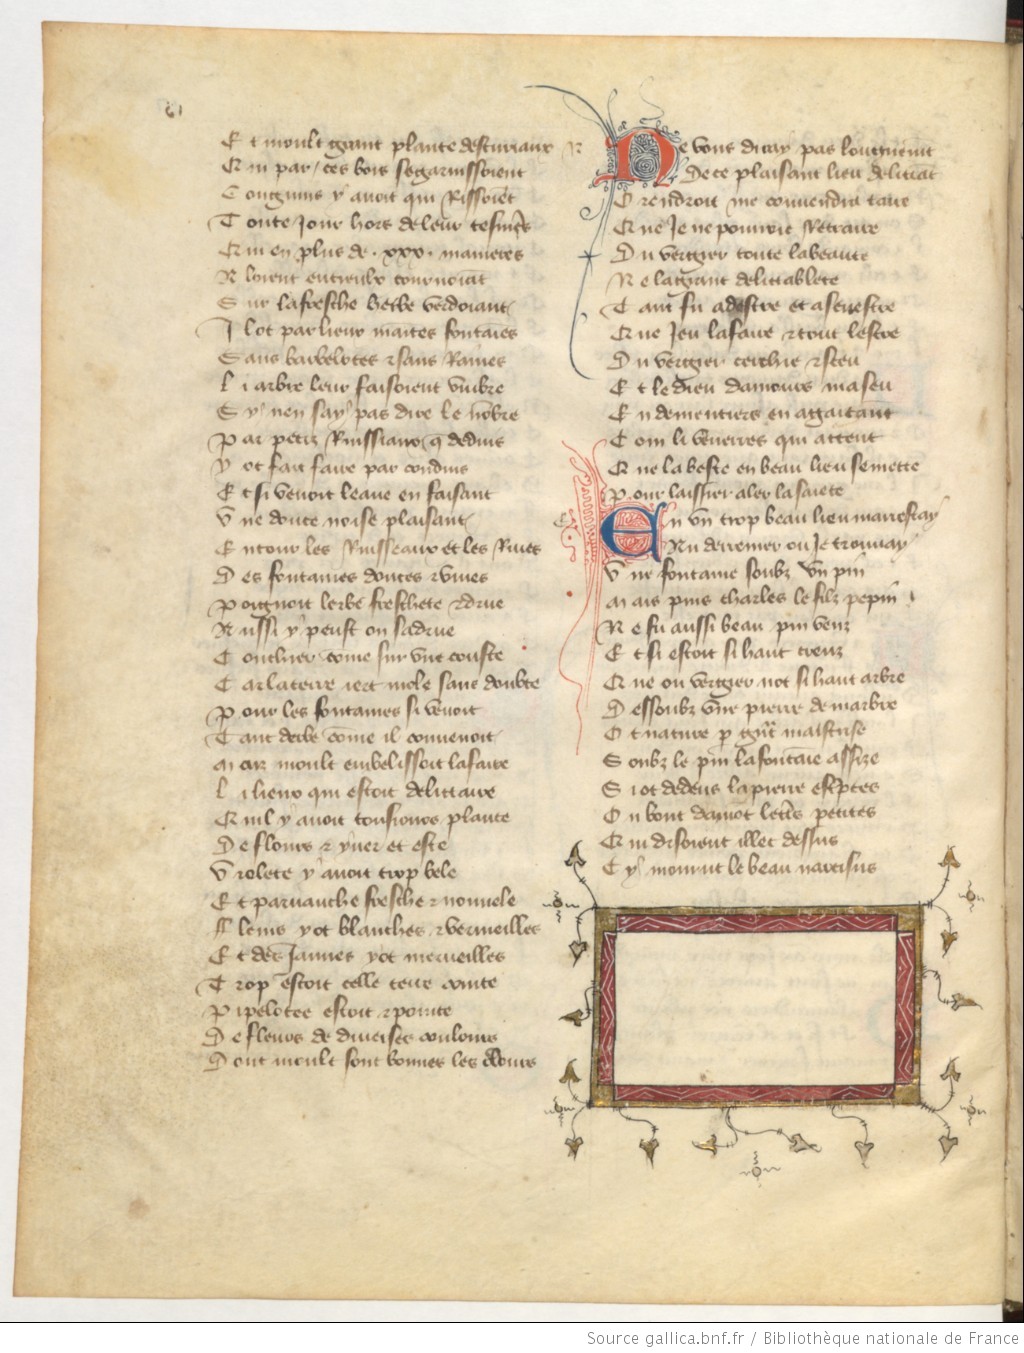 Et moult grant plante descuriaux
Qui par ces bois segarnissoient
Congnins y auoit qui Rissoient
Toute Jour hors de leur tesnieres
Qui en plus de . xxx . manieres
Aloient entreulx tournoiant
Sur la fresche herbe verdoiant
Il ot par lieux maites fontaines
Sans barbelotes & sans Raines
Li arbre leur faisoient vmbre
Sy nen say pas dire le nombre
Par petiz Ruissiaux q dedins
Y ot fait faire par conduis
Et si venoit leaue en faisant
Vne douce noise plaisant
Entour les Ruisseaux et les Riues
Des fontaines douces & viues
Poignoit lerbe freschete & drue
Aussi y peust on sa drue
Couchier come sur vne couste
Car la terre iert mole sans doubte
Pour les fontaines si venoit
Tant derbe come il conuenoit
Mais moult embelissoit lafaire
Li lieux qui estoit delittaire
Quil y auoit tousiours plante
De flours & yuer et este
Violete y auoit trop bele
Et paruanche fresche & nouuele
Fleurs yot blanches & vermeilles
Et des Jaunes yot merueilles
Trop estoit celle terre cointe
Pipelotee estoit & pointe
De fleurs de diuerses coulours
Dont moult sont bonnes les odours
Ne vous diray pas longuement
De ce plaisant lieu delittat
Orendroit me conuendra taire
Que Je ne pourroie Retraire
Du vergier toute la beaute
Ne la grant delitablete
Tant fu a destre et a senestre
Que Jeu lafaire & tout lestre
Du vergier cerchie & sceu
Et le dieu damours ma seu
Endementiers en agaitant
Com li venerres qui attent
Que la beste en beau lieu se mette
Pour laissier aler la saiete
En vn trop beau lieu marrestay
Au derrenier ou Je trouuay
Vne fontaine soubz vn pin
Mais puis charles le filz pepin
Ne fu aussi beau pin veuz
Et si estoit si hault creuz
Que ou vergier not si hault arbre
Dessoubz vne pierre de marbre
Ot nature p gnt maistrise
Soubz le pin la fontaine assize
Si ot dedens la pierre escriptes
Ou bout damont lettres petites
Qui disoient illec dessus
Cy mourut le beau narcisus
Source gallica.bnf.fr / Bibliothèque nationale de France